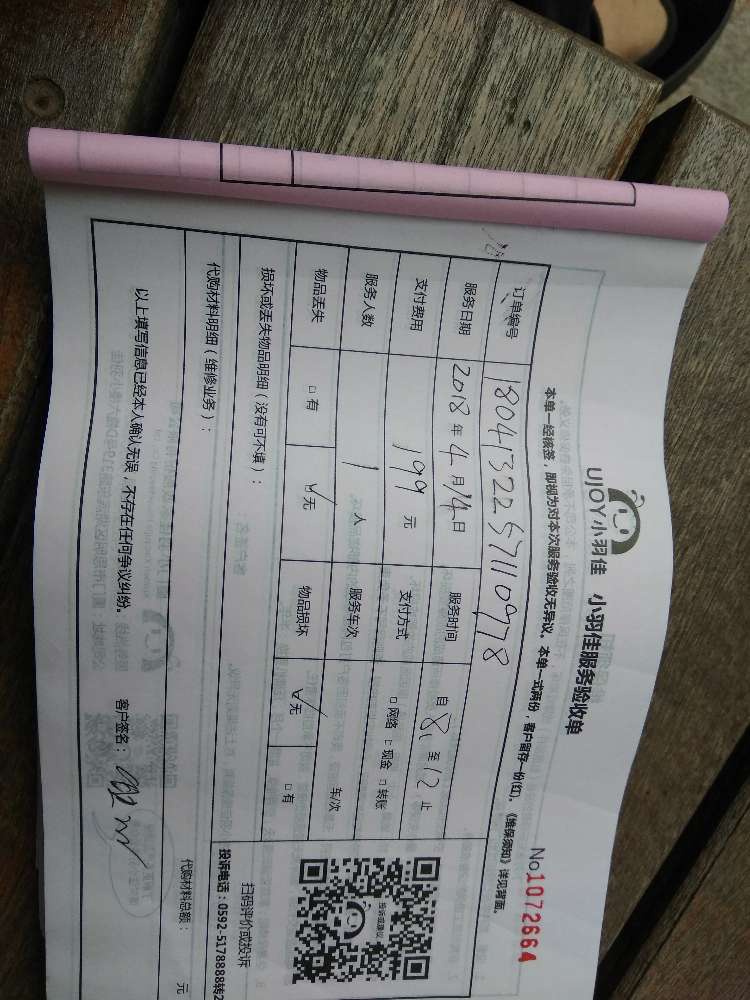 UJOY小羽佳 小羽佳服务验收单
No1072664
本单一经核签，即视为对本次服务验收无异议。本单一式两份，客户留存一份(红)。《维保须知》详见背面。
订单编号 1804132257110978
服务日期 2018 年 4 月 14 日 服务时间 自 8 至 12 止
支付费用 199 元 支付方式 □网络 □现金 □转账
服务人数 1 人 服务车次 车/次
物品丢失 □有 ☑无 物品损坏 ☑无 □有
损坏或丢失物品明细（没有可不填）：
代购材料明细（维修业务）：
代购材料总额： 元
以上填写信息已经本人确认无误，不存在任何争议纠纷。 客户签名：
投诉或建议
扫码评价或投诉
投诉电话：0592-5178888转2